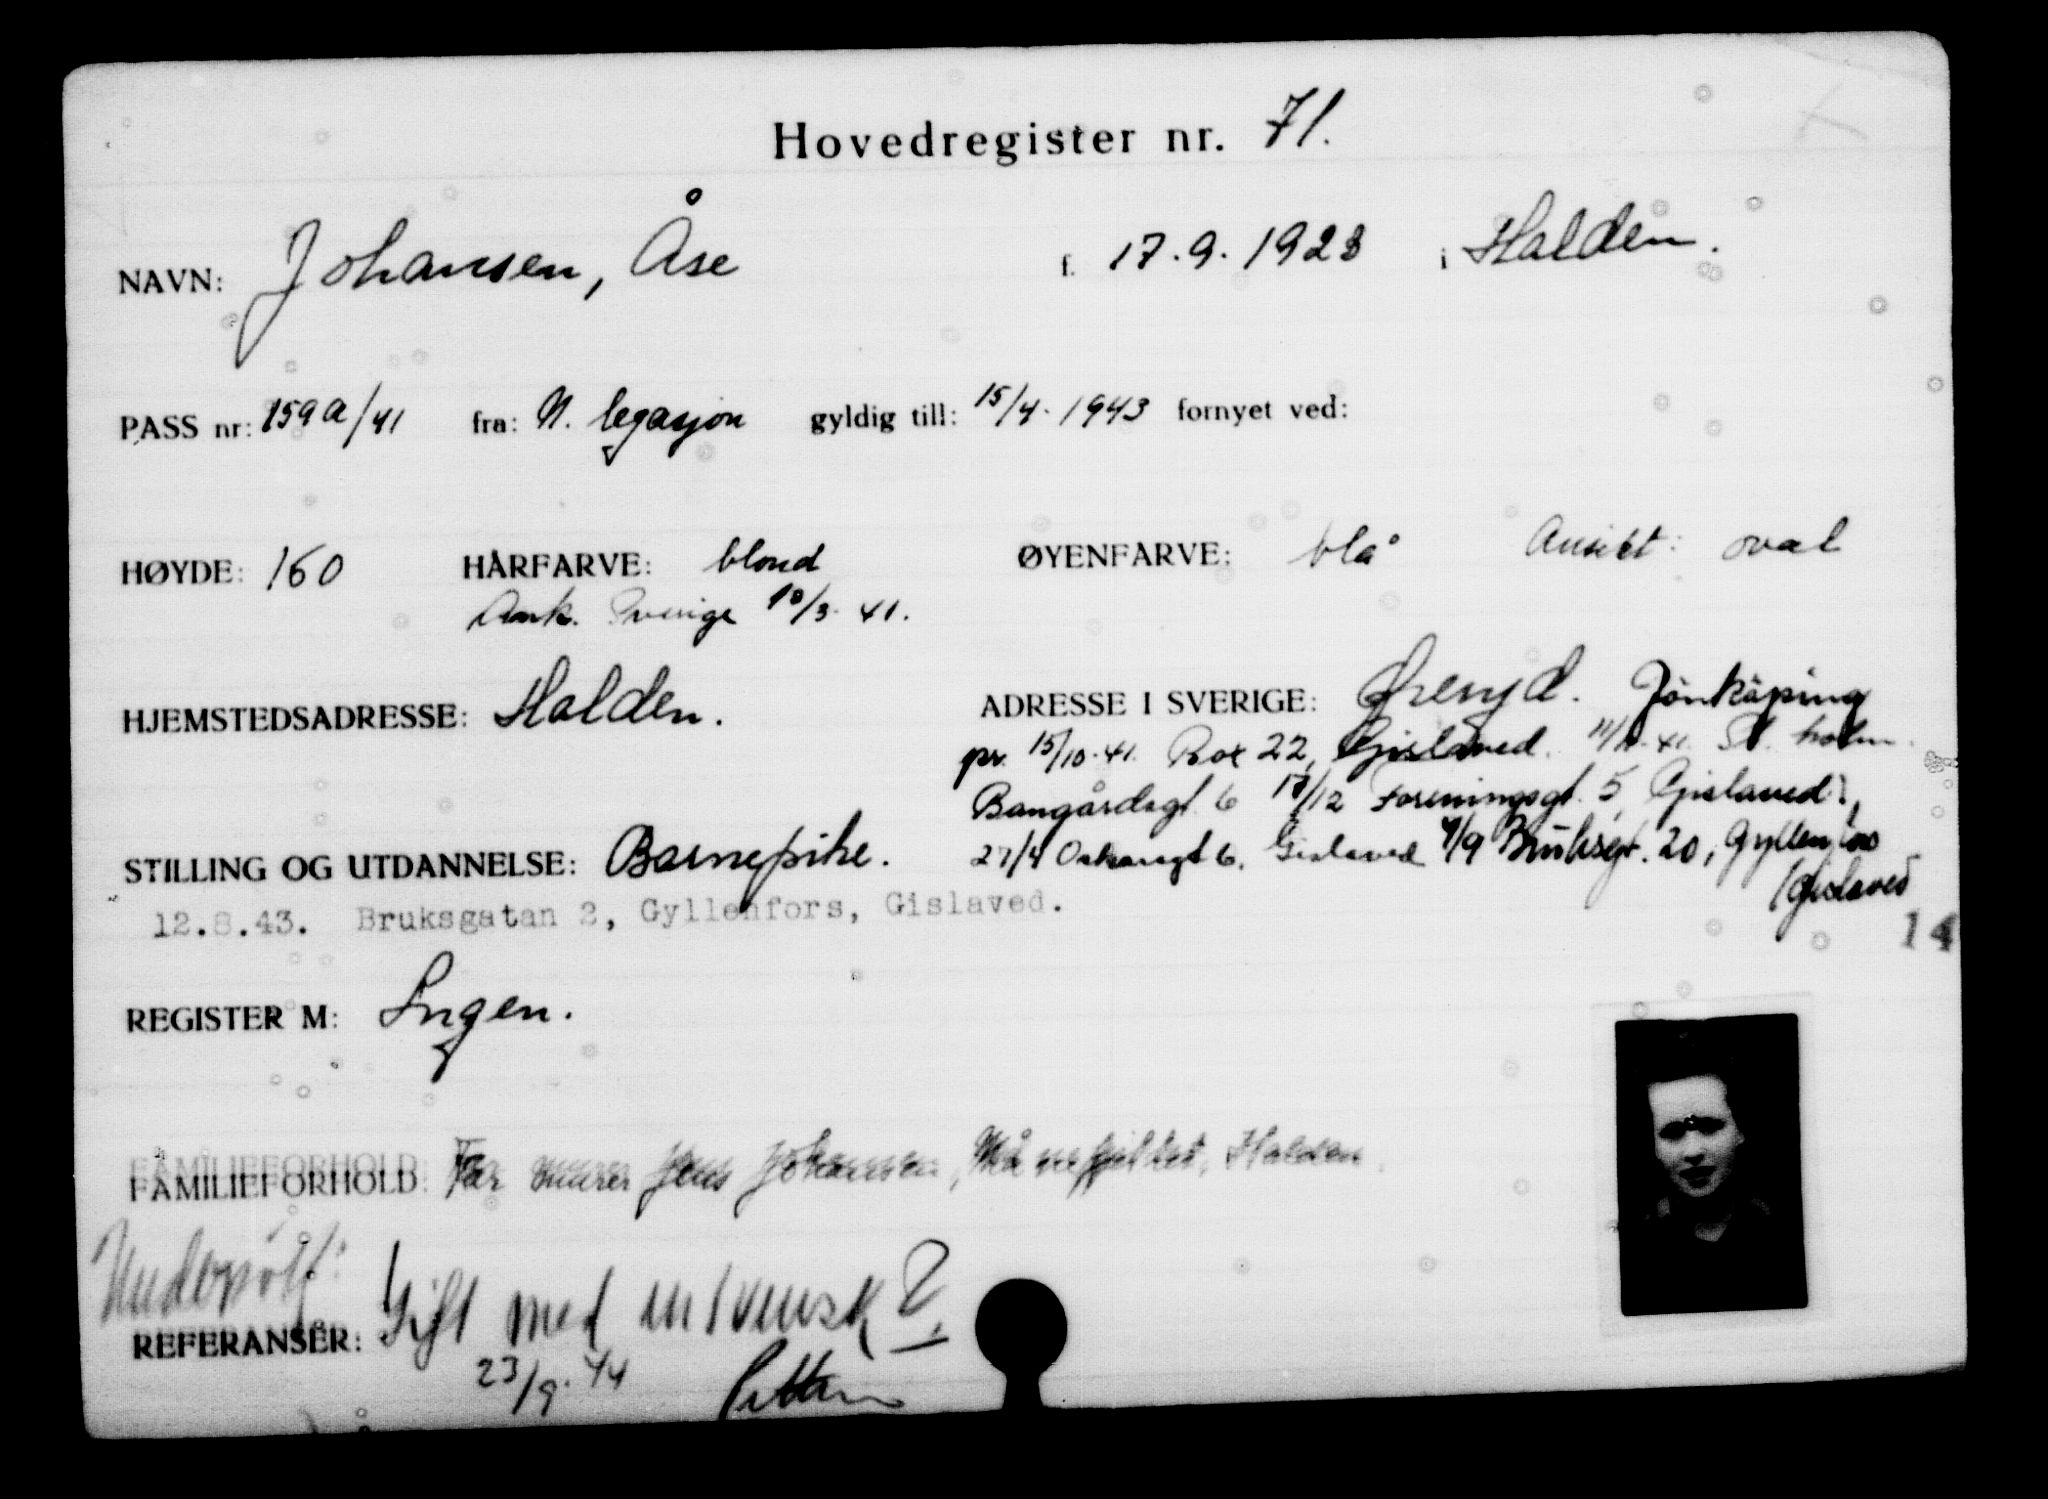 Hovedregister nr. 71.
NAVN: Johansen, Åse f. 17.9.1923 i Halden.
PASS nr: 159a/41 fra: N. legasjon gyldig till: 15/4-1943 fornyet ved:
HØYDE: 160 HÅRFARVE: blond ØYENFARVE: blå Ansikt: oval
Ank. Sverige 10/3-41.
HJEMSTEDSADRESSE: Halden. ADRESSE I SVERIGE: Jönköping
pr. 15/10-41. Box 22, Gislaved. St. holm.
Bangårdsgt. 6 Föreningsgt. 5, Gislaved.
STILLING OG UTDANNELSE: Barnepike. 27/4 6, Gislaved 4/9 Bruksgt. 20, Gyllenfors
Gislaved
12.8.43. Bruksgatan 2, Gyllenfors, Gislaved.
14
REGISTER M: Ingen.
FAMILIEFORHOLD: Far murer Jens Johansen, Halden.
REFERANSER: Gift med en svensk?
23/9-44